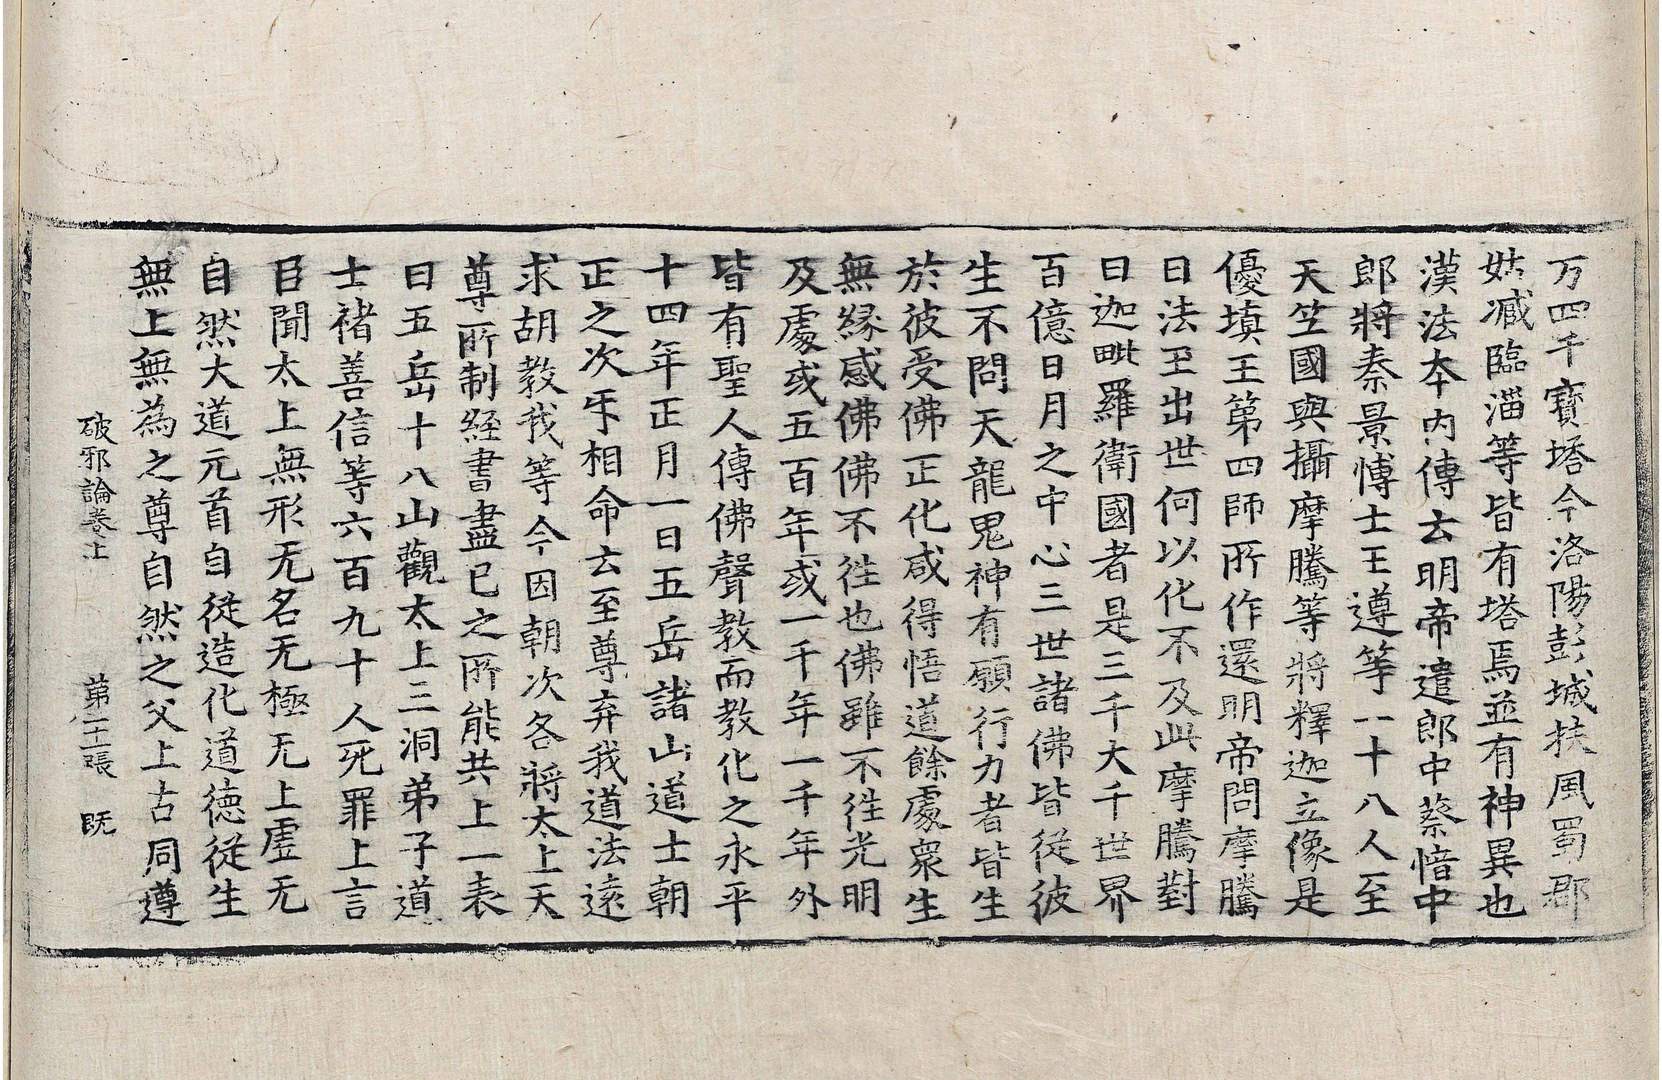 万四千寶塔今洛陽彭城扶風蜀郡
姑臧臨淄等皆有塔焉並有神異也
漢法本內傳云明帝遣郎中蔡愔中
郎將秦景愽士王遵等一十八人至
天竺國與攝摩騰等將釋迦立像是
優填王第四師所作還明帝問摩騰
曰法王出世何以化不及此摩騰對
曰迦毗羅衛國者是三千大千世界
百億日月之中心三世諸佛皆從彼
生不問天龍鬼神有願行力者皆生
於彼受佛正化咸得悟道餘處衆生
無緣感佛佛不徃也佛雖不徃光明
及處或五百年或一千年一千年外
皆有聖人傳佛聲教而教化之永平
十四年正月一日五岳諸山道士朝
正之次㸦相命云至尊弃我道法遠
求胡教我等今因朝次各將太上天
尊所制經書盡己之所能共上一表
曰五岳十八山觀太上三洞弟子道
士褚善信等六百九十人死罪上言
臣聞太上無形无名无極无上虛无
自然大道元首自從造化道德從生
無上無為之尊自然之父上古同遵
破邪論卷上 第二十一張 旣